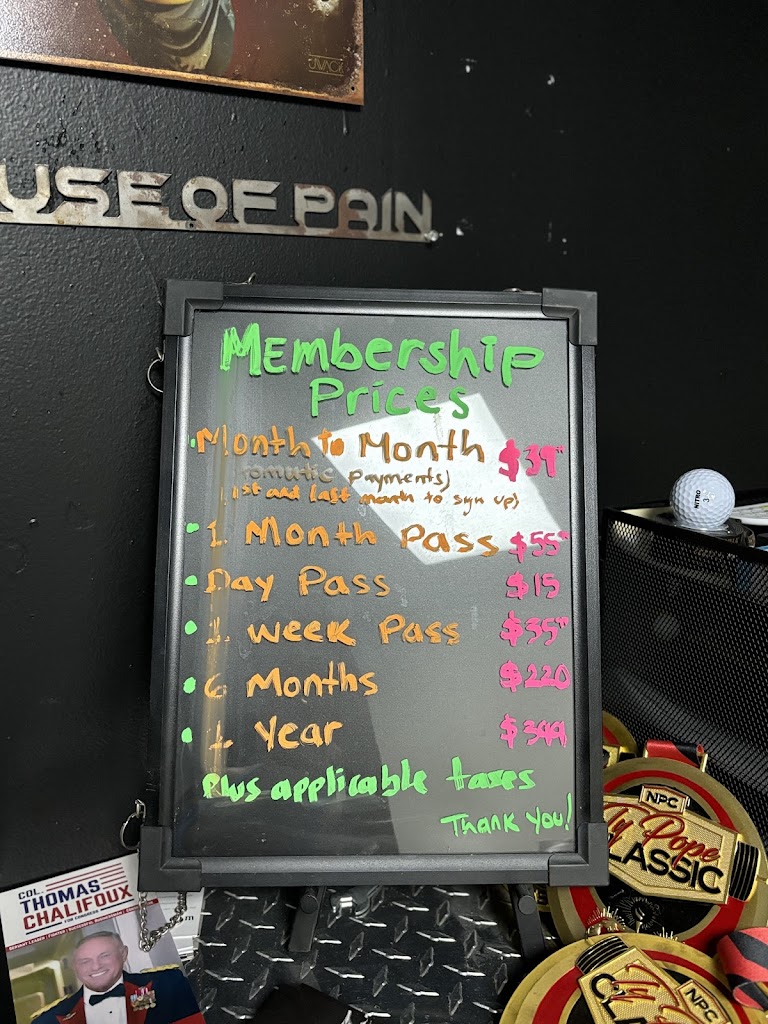 JVACI
USE OF PAIN
MEMBERSHIP
PRICES
Month to Month $39
omatic Payments)
(1st and last month to sign up)
1 Month Pass $55
Day Pass $15
1 week Pass $35
6 Months $220
1 Year $399
Plus applicable taxes
Thank You!
NITRO
3
COL.
THOMAS
CHALIFOUX
FOR CONGRESS
NPC
Ty Pope
CLASSIC
NPC